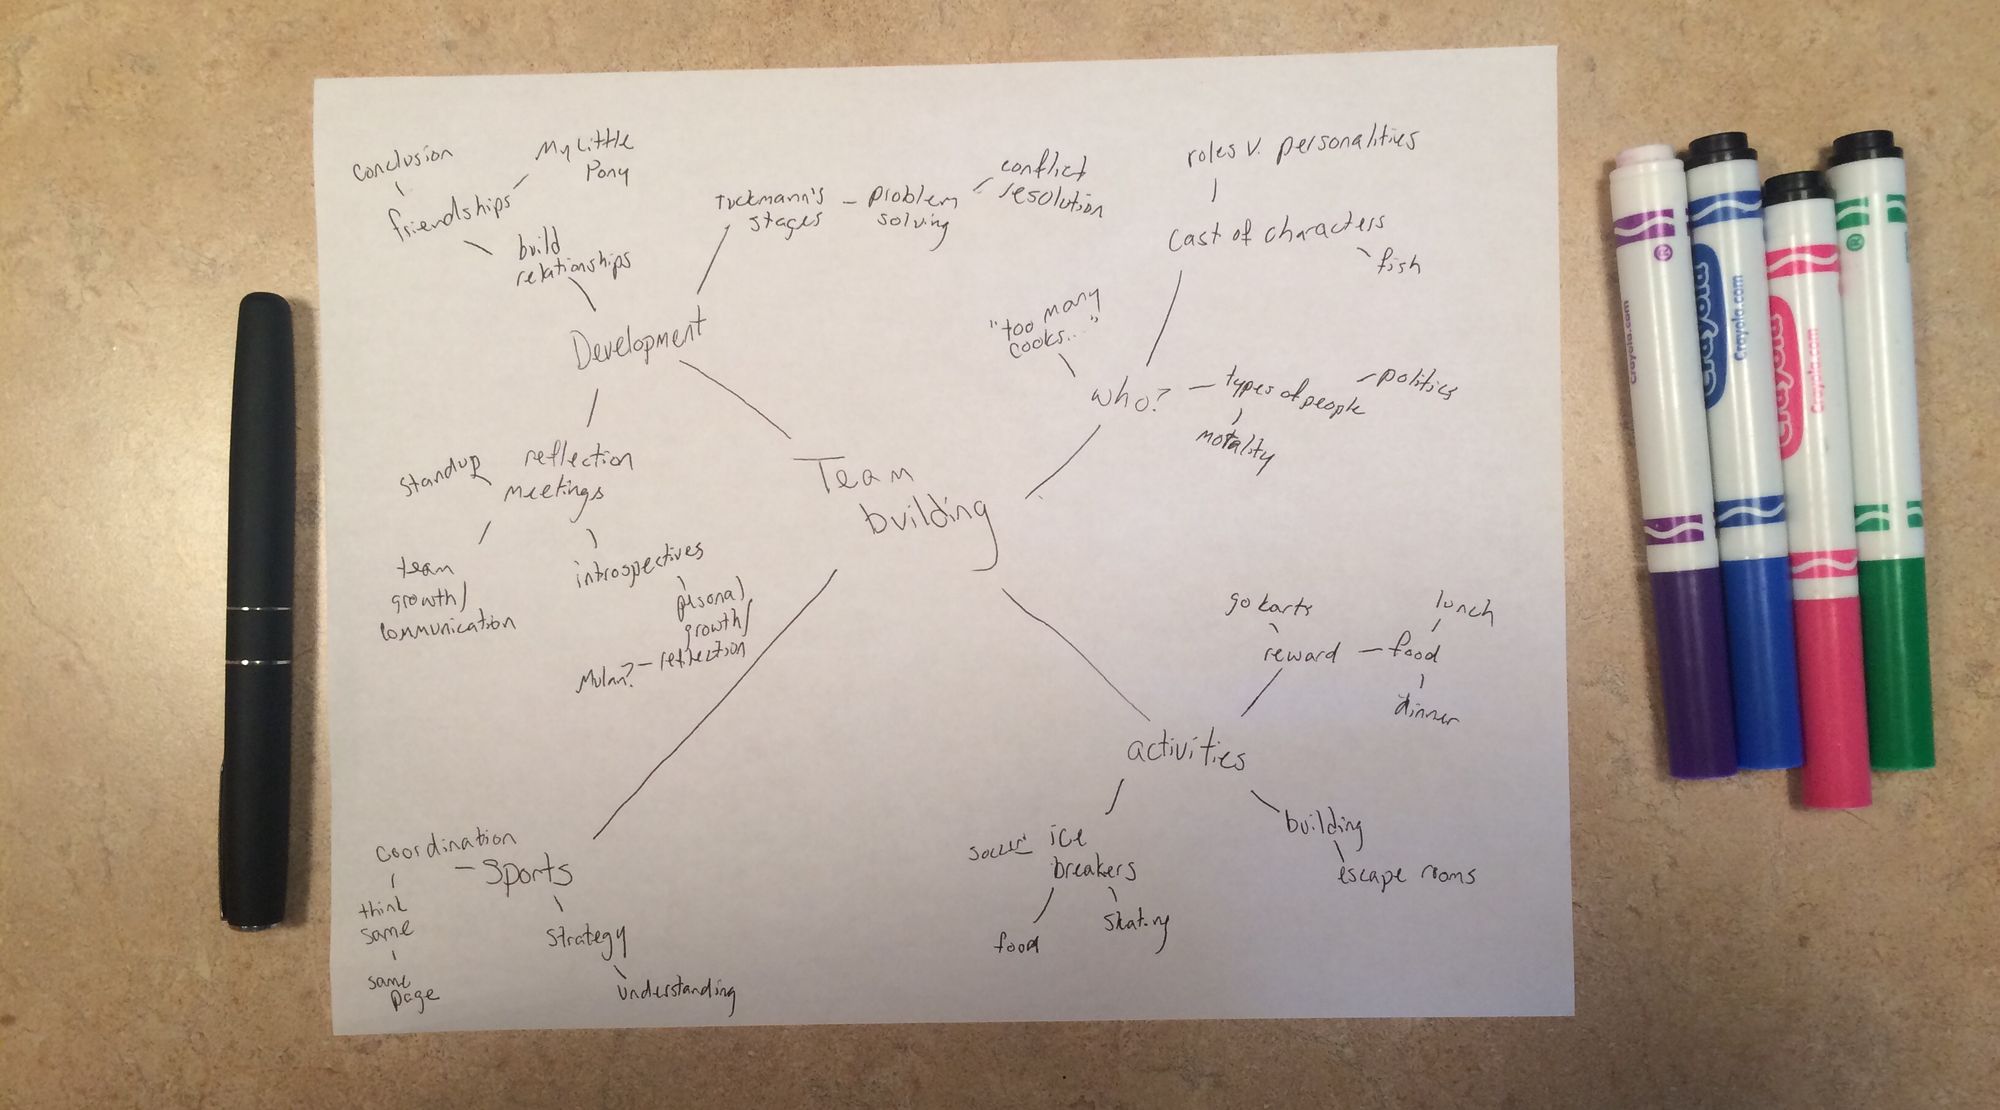 conclusion
friendships
My Little
Pony
build
relationships
Tuckmann's
stages
problem
solving
conflict
resolution
roles v. personalities
cast of characters
fish
"too many
cooks..."
who?
types of people
politics
motality
Development
standup
reflection
meetings
team
growth/
communication
introspectives
pesonal
growth/
reflection
Mulan?
Team
building
coordination
Sports
think
same
same
page
strategy
understanding
go karts
reward
food
lunch
dinner
activities
building
escape rooms
soccer
ice
breakers
food
skating
Crayola.com
Crayola
Crayola.com
Crayola
Crayola.com